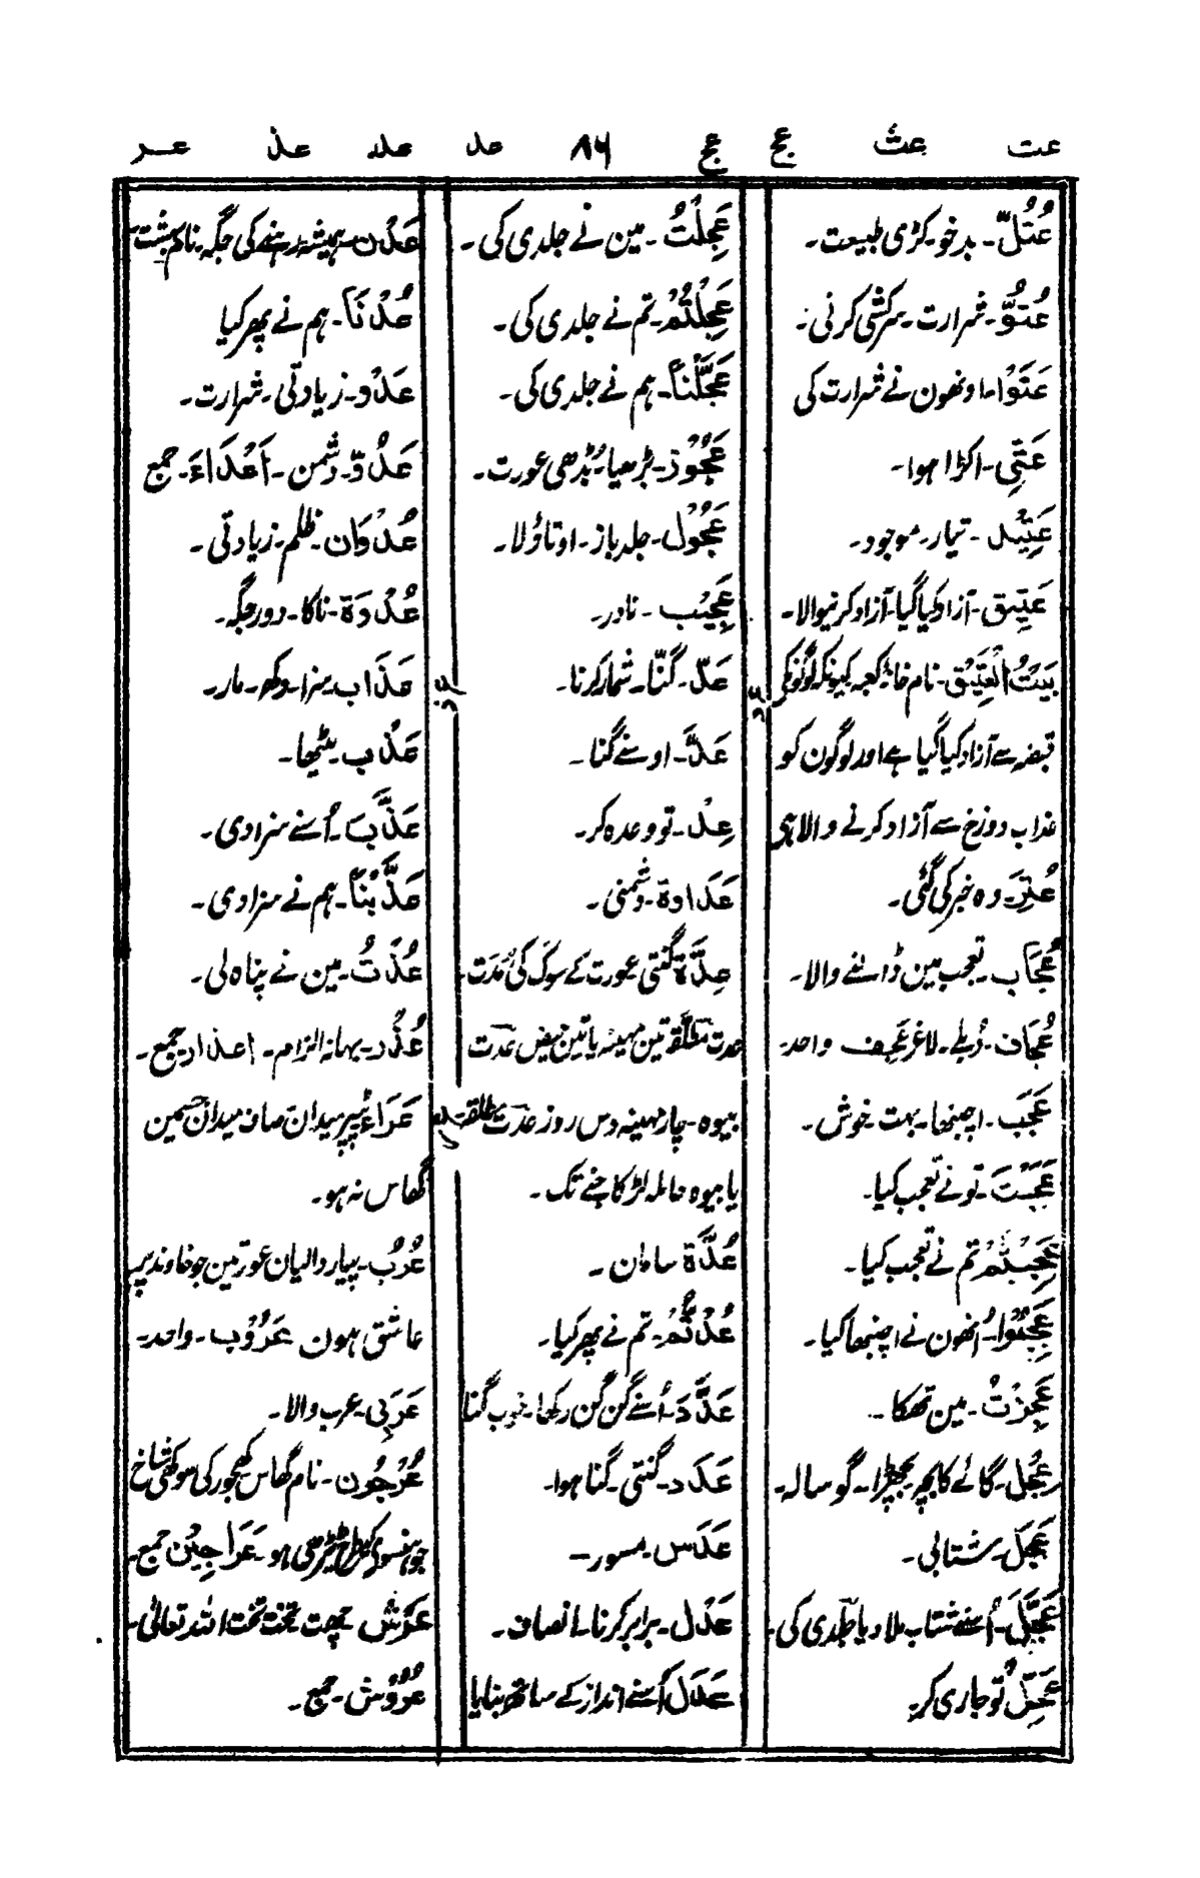 عت عث عج عج ٨٦ عد علد عذ عر
عُتُلّ۔ بدخو۔ کڑی طبیعت۔
عُتُوٌّ۔ شرارت۔ سرکشی کرنی۔
عَتَوْا۔ اونھون نے شرارت کی
عَتِیّ۔ اکڑا ہوا۔
عَتِیْد۔ تیار۔ موجود۔
عَتِیق۔ آزاد کیا گیا۔ آزاد کرنیوالا۔
بَیْتُ الْعَتِیْق۔ نام خانۂ کعبہ کیونکہ لوگونکی
قبضہ سے آزاد کیا گیا ہے اور لوگون کو
عذاب دوزخ سے آزاد کرنے والا ہی
عُثِرَ۔ وہ خبر کی گئی۔
عُجَاب۔ تعجب مین ڈالنے والا۔
عُجَاف۔ دُبلے۔ لاغر عَجِف واحد۔
عَجَب۔ اچنبھا۔ بہت خوش۔
عَجِبْتَ۔ تو نے تعجب کیا۔
عَجِبْتُمْ تم نے تعجب کیا۔
عَجِبُوْا۔ اُنھون نے اچنبھا کیا۔
عَجَزْتُ۔ مین تھکا۔
عِجْل۔ گائے کا بچہ بچھڑا۔ گوسالہ۔
عَجَل۔ شتابی۔
عَجَّلَ۔ اُسنے شتاب ملا دیا جلدی کی۔
عَجِّلْ تو جاری کر۔
عَجِلْتُ۔ مین نے جلدی کی۔
عَجِلْتُمْ۔ تم نے جلدی کی۔
عَجَّلْنَا۔ ہم نے جلدی کی۔
عَجُوْز۔ بڑھیا۔ بُڈھی عورت۔
عَجُوْل۔ جلد باز۔ اوتاؤلا۔
عَجِیْب۔ نادر۔
عَدّ۔ گننا۔ شمار کرنا۔
عَدَّ۔ اوسنے گنا۔
عِدْ۔ تو وعدہ کر۔
عَدَاوة۔ دشمنی۔
عِدَّة گنتی عورت کے سوگ کی مُدّت۔
عدت مطلّقہ تین مہینہ یا تین حیض عدت
بیوہ۔ چار مہینہ دس روز عدت مطلقہ
یا بیوہ حاملہ لڑکا جننے تک۔
عُدَّة سامان۔
عُدْتُّمْ۔ تم نے پھر کیا۔
عَدَّدَ۔ اُسنے گن گن رکھا۔ خوب گنا
عَدَد۔ گنتی۔ گنا ہوا۔
عَدَس۔ مسور۔
عَدْل۔ برابر کرنا۔ انصاف۔
عَدَلَ اُسنے انداز کے ساتھ بنایا
عَدْن۔ ہمیشہ رہنے کی جگہ۔ نام بہشت۔
عُدْنَا۔ ہم نے پھر کیا
عَدْو۔ زیادتی۔ شرارت۔
عَدُوّ۔ دشمن۔ اَعْدَاءَ۔ جمع
عُدْوَان۔ ظلم۔ زیادتی۔
عُدْوَة۔ ناکا۔ دور جگہ۔
عَذَاب۔ سزا۔ دکھ۔ مار۔
عَذْب۔ میٹھا۔
عَذَّبَ۔ اُسنے سزا دی۔
عَذَّبْنَا۔ ہم نے سزا دی۔
عُذْتُ۔ مین نے پناہ لی۔
عُذْر۔ بہانہ الزام۔ اعذار۔ جمع۔
عَرَاءِ پٹپر میدان صاف میدان جسمین
گھاس نہ ہو۔
عُرُب۔ پیار والیان عورتین جو خاوند پر
عاشق ہون عَرُوْب۔ واحد۔
عَرَبِی۔ عرب والا۔
عُرْجُون۔ نام گھاس کھجور کی سوکھی شاخ
جو ہنسو کیطرح ٹیڑھی ہو۔ عَرَاجِیْن جمع۔
عَرْش چھت تخت تخت اللہ تعالیٰ۔
عُرُوْش۔ جمع۔